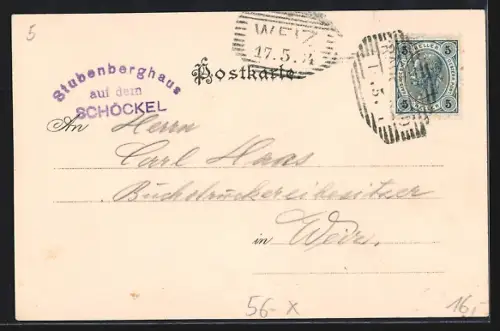 5
WEIZ
17.5.
Postkarte
Stubenberghaus
auf dem
SCHÖCKEL
5 5
5 5
An Herrn
Carl Haas
Buchdruckereibesitzer
in Weiz.
56-x
16,-